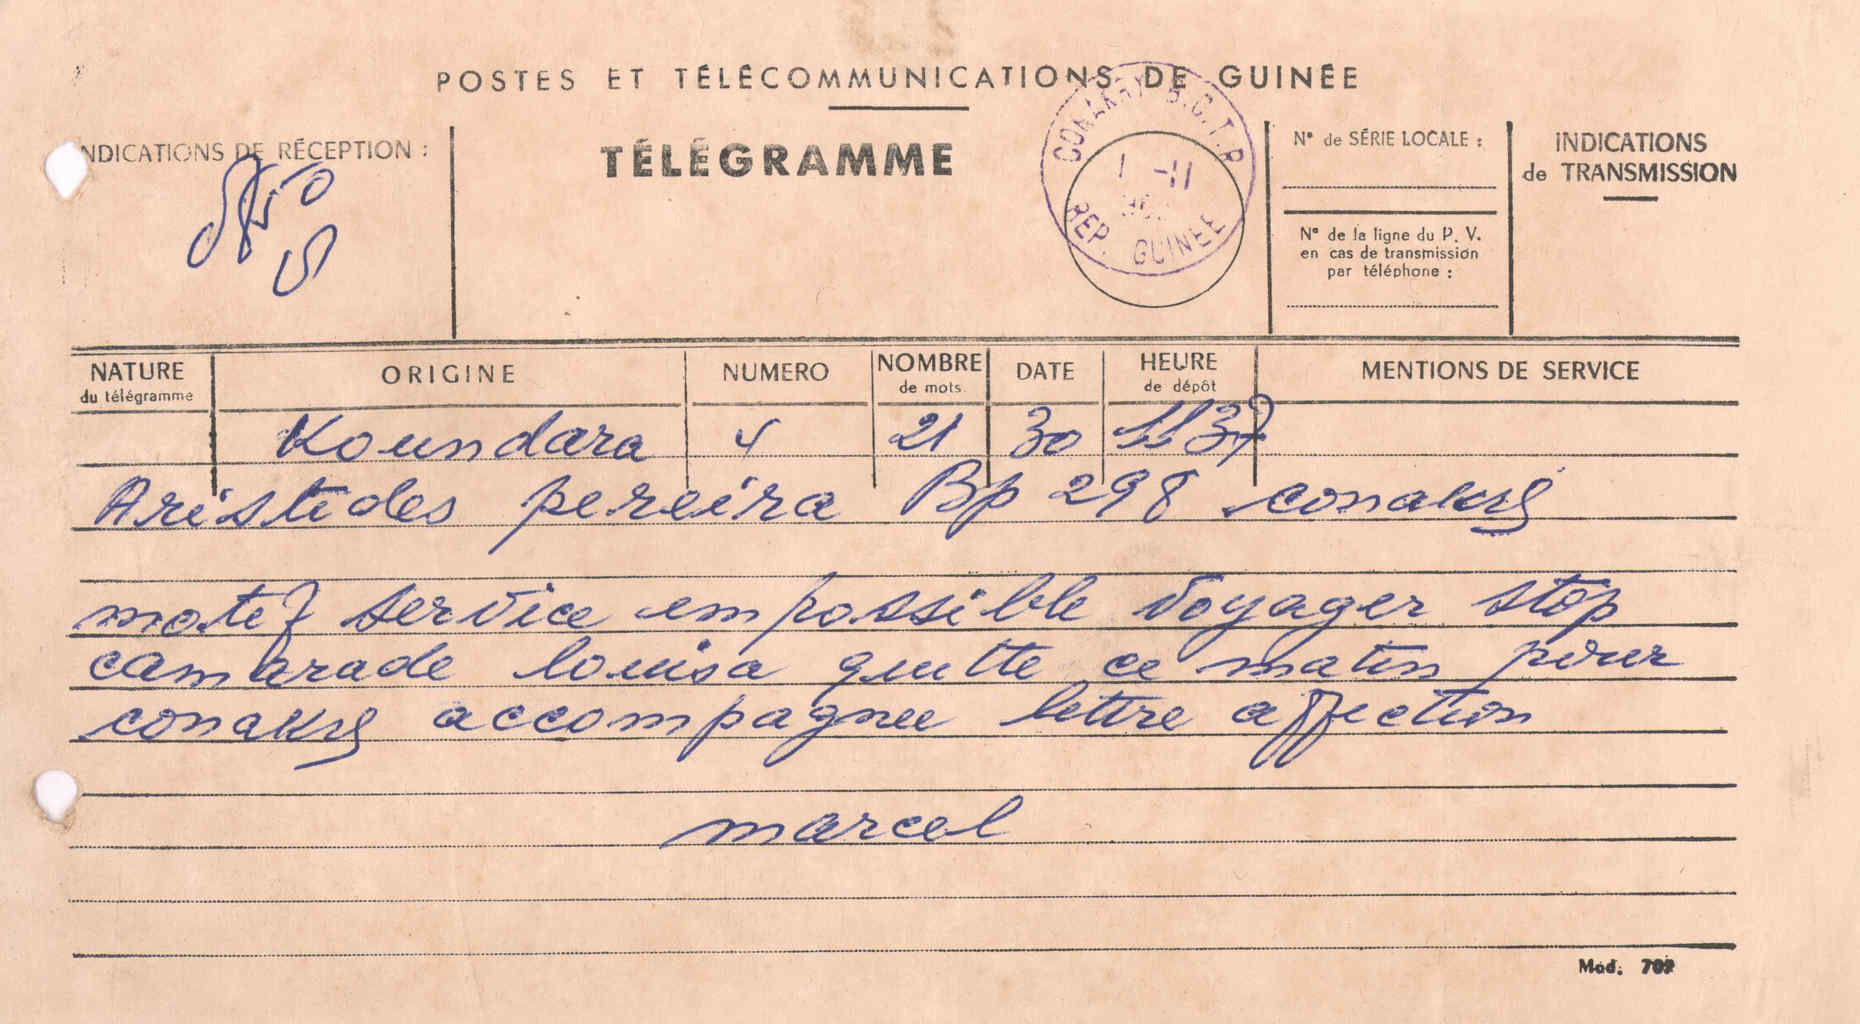 POSTES ET TÉLÉCOMMUNICATIONS DE GUINÉE
NDICATIONS DE RÉCEPTION :
TÉLÉGRAMME
CONAKRY B.C.T.R
1 -11
REP. GUINEE
N° de SÉRIE LOCALE :
N° de la ligne du P. V.
en cas de transmission
par téléphone :
INDICATIONS
de TRANSMISSION
NATURE du télégramme ORIGINE NUMERO NOMBRE de mots. DATE HEURE de dépôt MENTIONS DE SERVICE
Koundara 4 21 30 1137
Aristides pereira Bp 298 conakry
motef service impossible voyager stop
camarade louisa quitte ce matin pour
conakry accompagnee lettre affection
marcel
Mod. 702